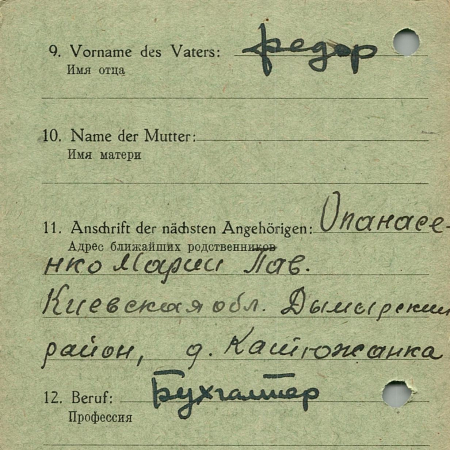 9. Vorname des Vaters: Федор
Имя отца
10. Name der Mutter:
Имя матери
11. Anschrift der nächsten Angehörigen: Опанасе-
Адрес ближайших родственников
нко Марии Пав.
Киевская обл. Дымарский
район, д. Катюжанка
12. Beruf: Бухгалтер
Профессия